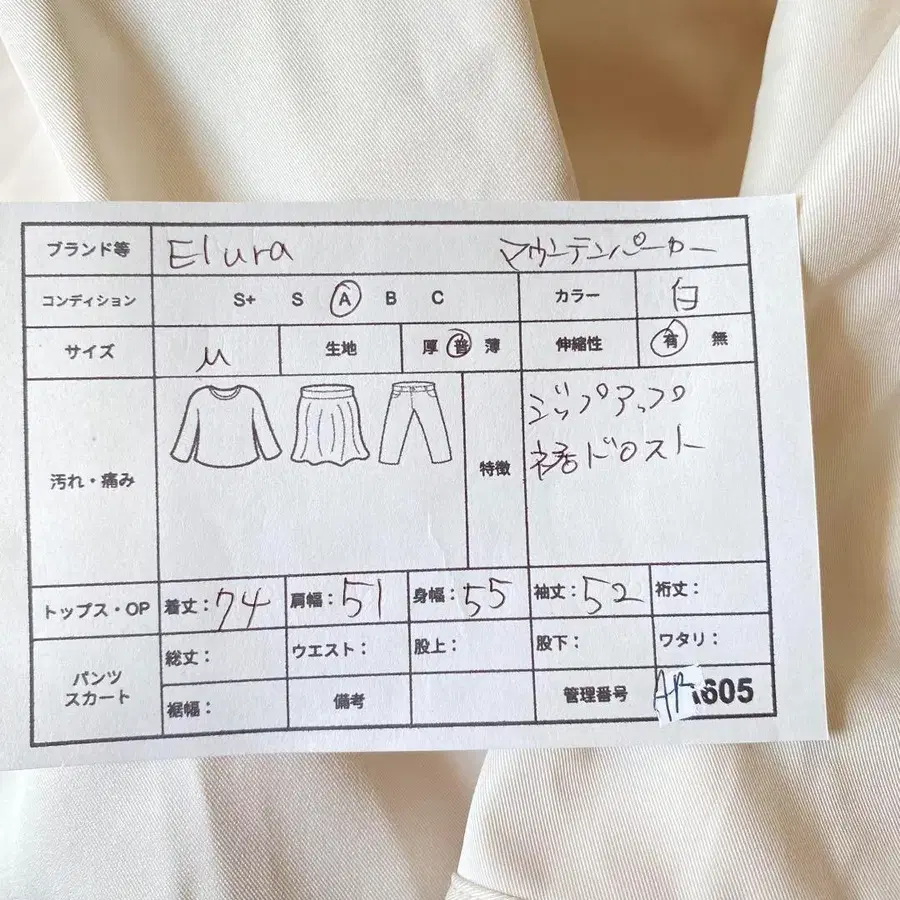 ブランド等 Elura マウンテンパーカー
コンディション S+ S A B C カラー 白
サイズ M 生地 厚 普 薄 伸縮性 有 無
汚れ・痛み 特徴 ジップアップ
裾ドロスト
トップス・OP 着丈:74 肩幅:51 身幅:55 袖丈:52 裄丈:
パンツ スカート 総丈: ウエスト: 股上: 股下: ワタリ:
裾幅: 備考 管理番号 605